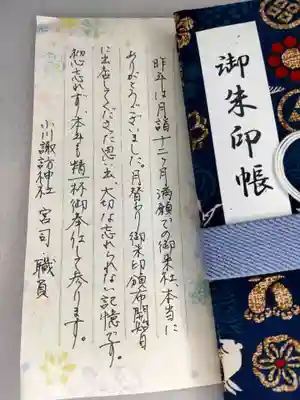 昨年は月詣十二ヶ月満願での御来社本当に
ありがとうございました。月替わり御朱印頒布開始日
に出店してくださった思い出、大切な忘れられない記憶です。
初心忘れず、本年も精一杯御奉仕して参ります。
小川諏訪神社 宮司 職員
御朱印帳